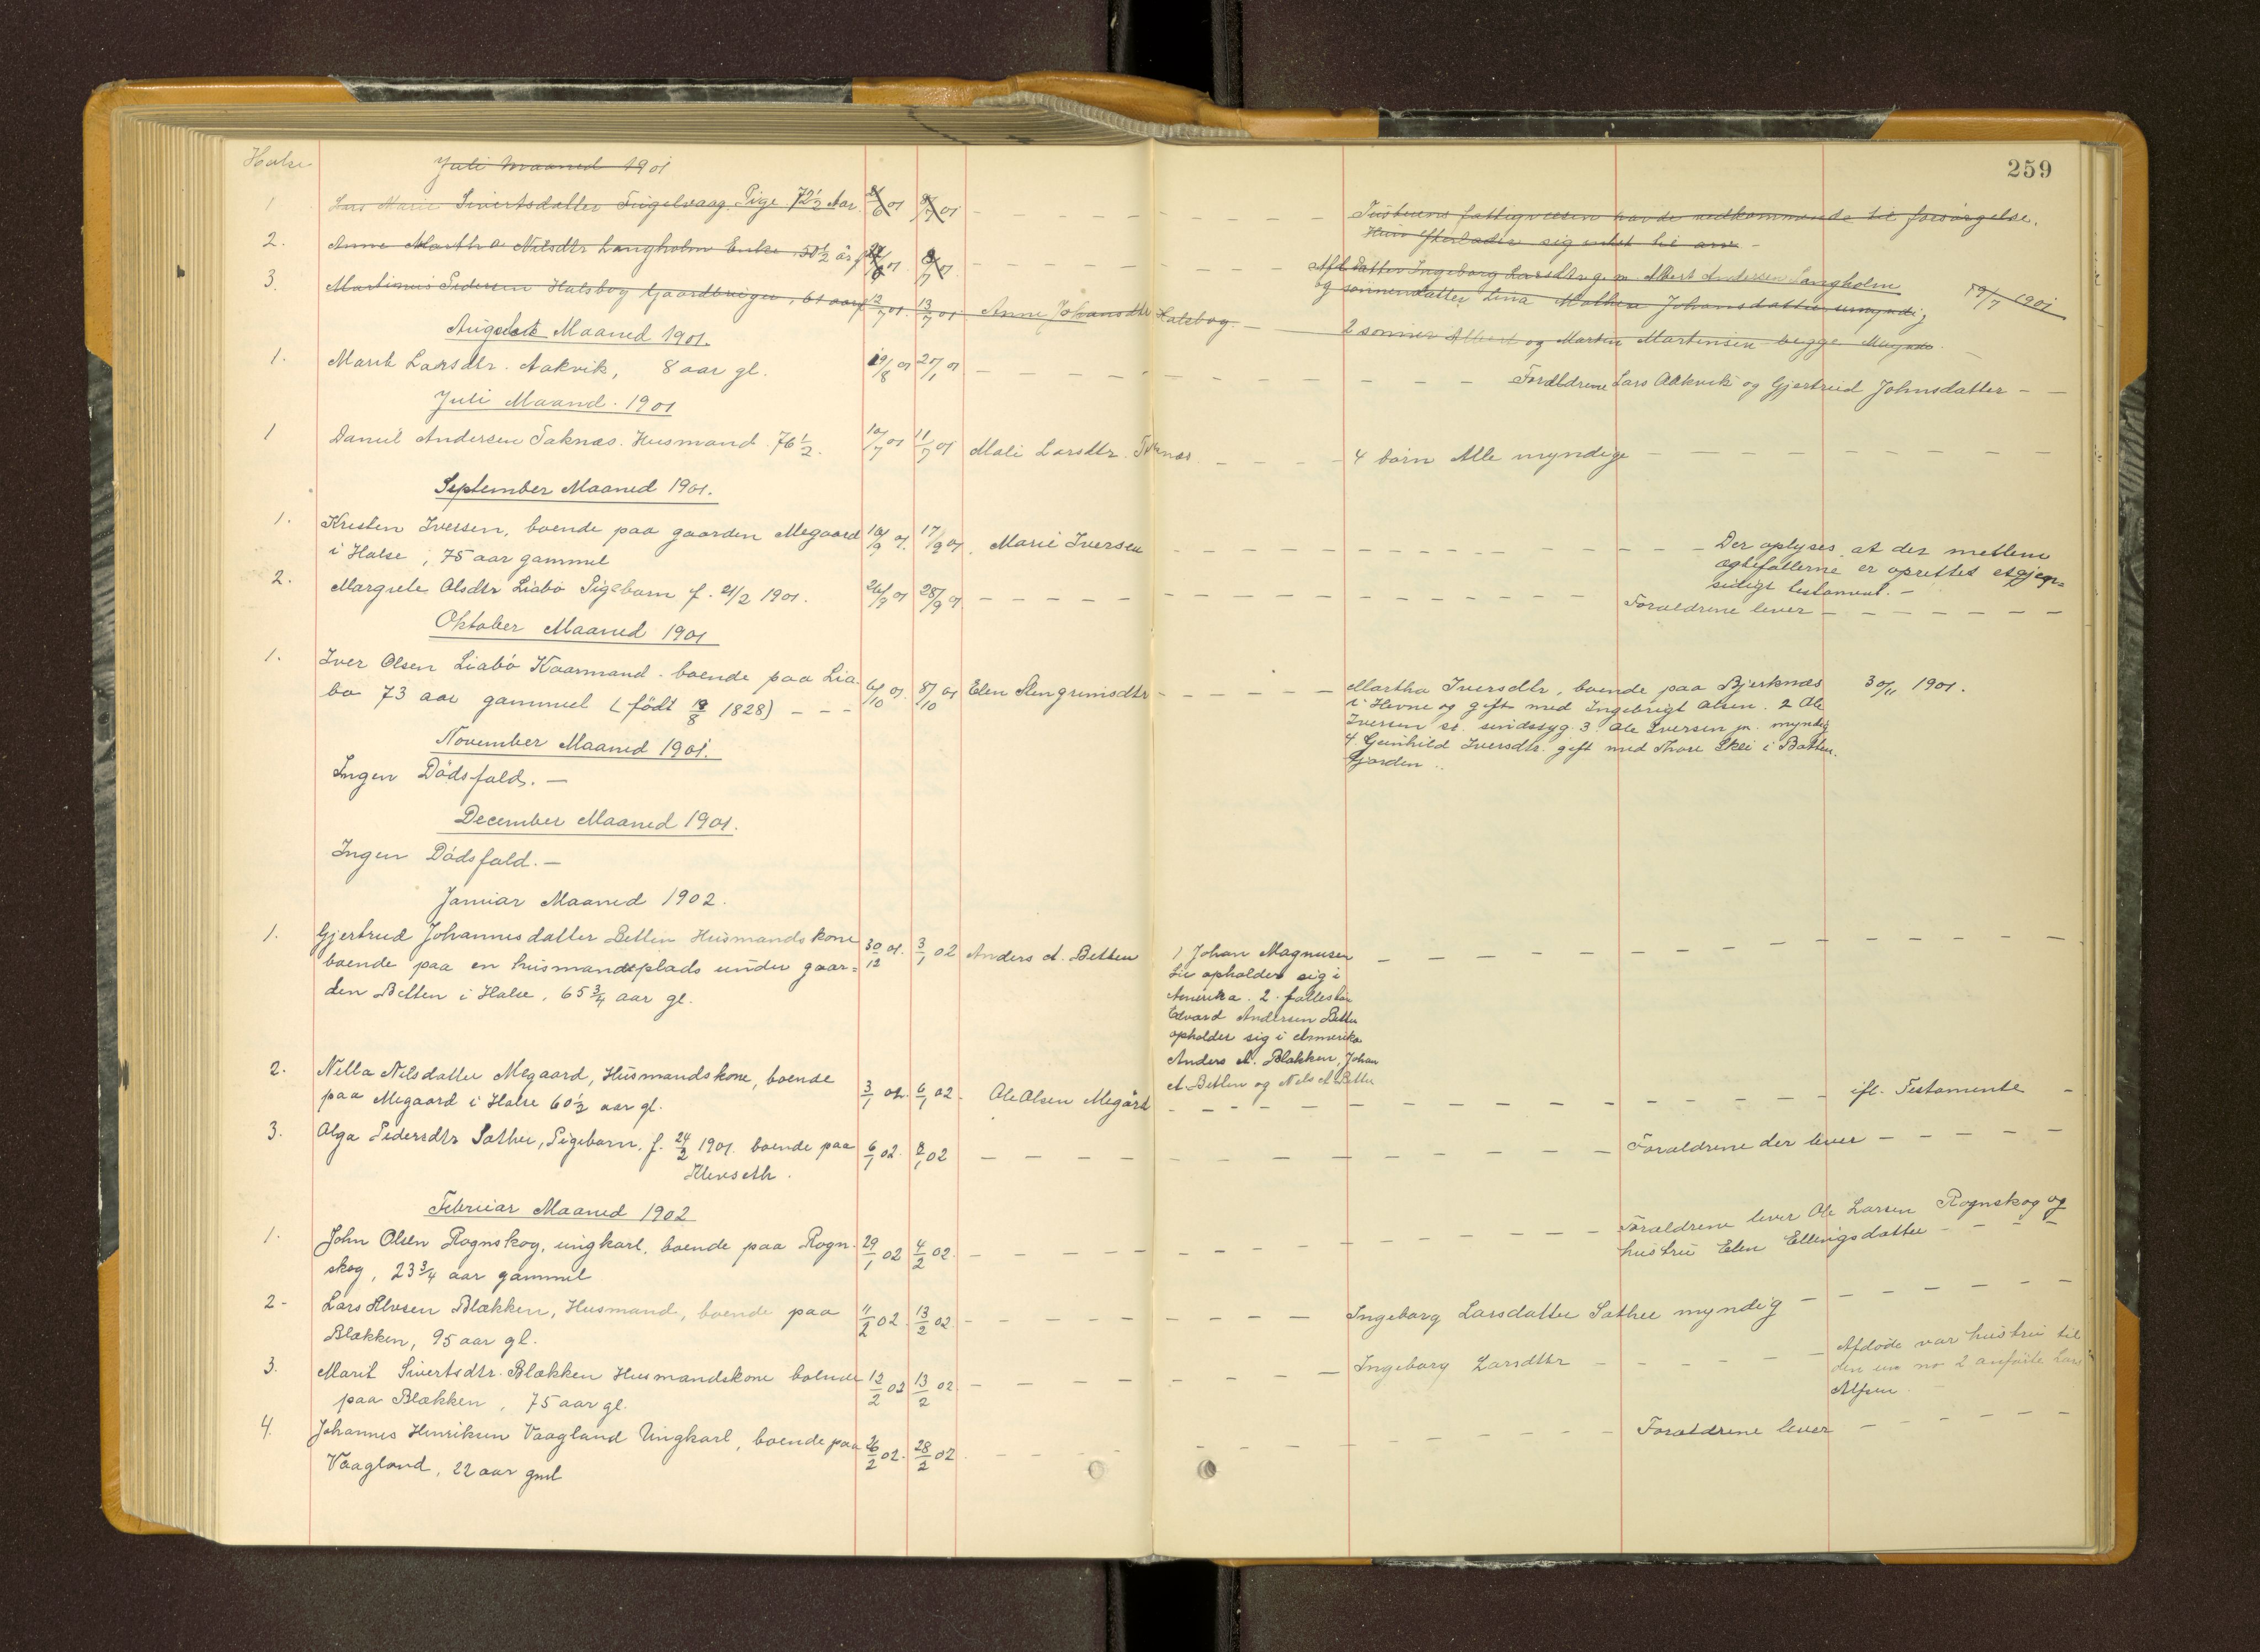 Halse
259
Juli Maaned 1901
1 Marie Sivertsdatter Fugelvaag. Pige 72 1/2 Aar. 01 01 Tustnens fattigvæsen havde vedkommende til forsørgelse.
Hun efterlader sig intet til arv
2. Anne Martha Nilsdtr Langholm Enke 50 1/2 år 01. 8/7 01. Afl. datter Ingeborg Larsdtr g. m. Albert Andersen Langholm
og sønnendatter Lina Mathea Johansdatter umyndig 19/7 1901
3. Martinus Pedersen Halsbog Gaardbruger, 61 aar 12/7 01. 13/7 01 Anne Johansdtr Halsbog. 2 sønner Albert og Martin Martinsen begge Mynd.
August Maaned 1901.
1. Marit Larsdtr. Aakvik, 8 aar gl. 19/8 01 21/1 01 Forældrene Lars Aakvik og Gjertrud Johnsdatter
Juli Maaned. 1901
1 Daniel Andersen Taknæs. Husmand. 76 1/2. 10/7 01 11/7 01 Mali Larsdtr. Taknæs 4 börn Alle myndige
September Maaned 1901.
1. Kristen Iversen, boende paa gaarden Megaard 10/9 01. 17/9 01. Marie Iversen Der oplyses at der mellem
i Halse, 75 aar gammel ægtefællerne er oprettet et gjen-
sidigt testament. -
2. Margrete Olsdtr Liabö Pigebarn f. 21/2 1901. 26/9 01 28/9 01 Forældrene lever
Oktober Maaned 1901
1. Iver Olsen Liabö Kaarmand. boende paa Lia-
bø 73 aar gammel (födt 19/8 1828) 6/10 01. 8/10 01 Elen Stengrimsdtr Martha Iversdtr, boende paa Bjerknæs 30/11 1901.
i Hevne og gift med Ingebrigt Olsen. 2 Ole
Iversen sr. sindssyg. 3. Ole Iversen jr. myndig
4. Gunhild Iversdtr. gift med Thore Sklei i Botten-
fjorden.
November Maaned 1901.
Ingen Dödsfald. -
December Maaned 1901.
Ingen Dödsfald. -
Januar Maaned 1902.
1. Gjertrud Johannesdatter Betten Husmandskone 30/12 01. 3/1 02 Anders A. Betten 1 Johan Magnusen
boende paa en husmandsplads under gaar- opholder sig i
den Betten i Halse, 65 3/4 aar gl. Amerika. 2. fællesbør
Edvard Andersen Betten
opholder sig i Amerika
Anders A. Blakken, Johan
A Betten og Nels A Betten
2. Nella Nilsdatter Megaard, Husmandskone, boende
paa Megaard i Halse 60 1/2 aar gl. 3/1 02. 6/1 02. Ole Olsen Megård ifl. Testamente
3. Olga Pedersdtr Sæther, Pigebarn, f. 24/2 1901. boende paa 6/1 02. 8/1 02 Forældrene der lever
Henseth.
Februar Maaned 1902
1. John Olsen Rognskog, ungkarl, boende paa Rogn- 29/1 02 4/2 02. Forældrene lever Ole Larsen Rognskog og
skog, 23 3/4 aar gammel hustru Elen Ellingsdatter
2- Lars Alvsen Blækken, Husmand, boende paa 11/2 02. 13/2 02. Ingeborg Larsdatter Sæther myndig
Blækken, 95 aar gl.
3. Marit Sivertsdtr. Blækken Husmandskone boende 12/2 02 13/2 02 Ingeborg Larsdtr Afdøde var hustru til
paa Blækken, 75 aar gl. den no 2 anførte Lars
4. Johannes Henriksen Vaagland Ungkarl, boende paa 26/2 02. 28/2 02. Forældrene lever
Vaagland, 22 aar gml